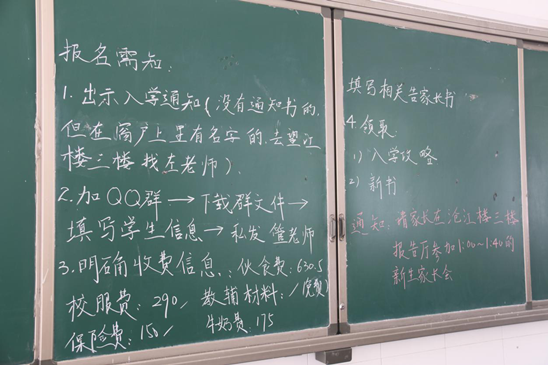 报名需知：
1. 出示入学通知（没有通知书的，
但在窗户上里有名字的，去望江
楼三楼找左老师）.
2. 加QQ群→下载群文件→
填写学生信息→私发管老师
3. 明确收费信息：伙食费：630.5
校服费：290/ 教辅材料：/（免费）
保险费：150/ 牛奶费：175
填写相关告家长书
4. 领取
1）入学攻略
2）新书
通知：请家长在沧江楼三楼
报告厅参加1:00～1:40的
新生家长会